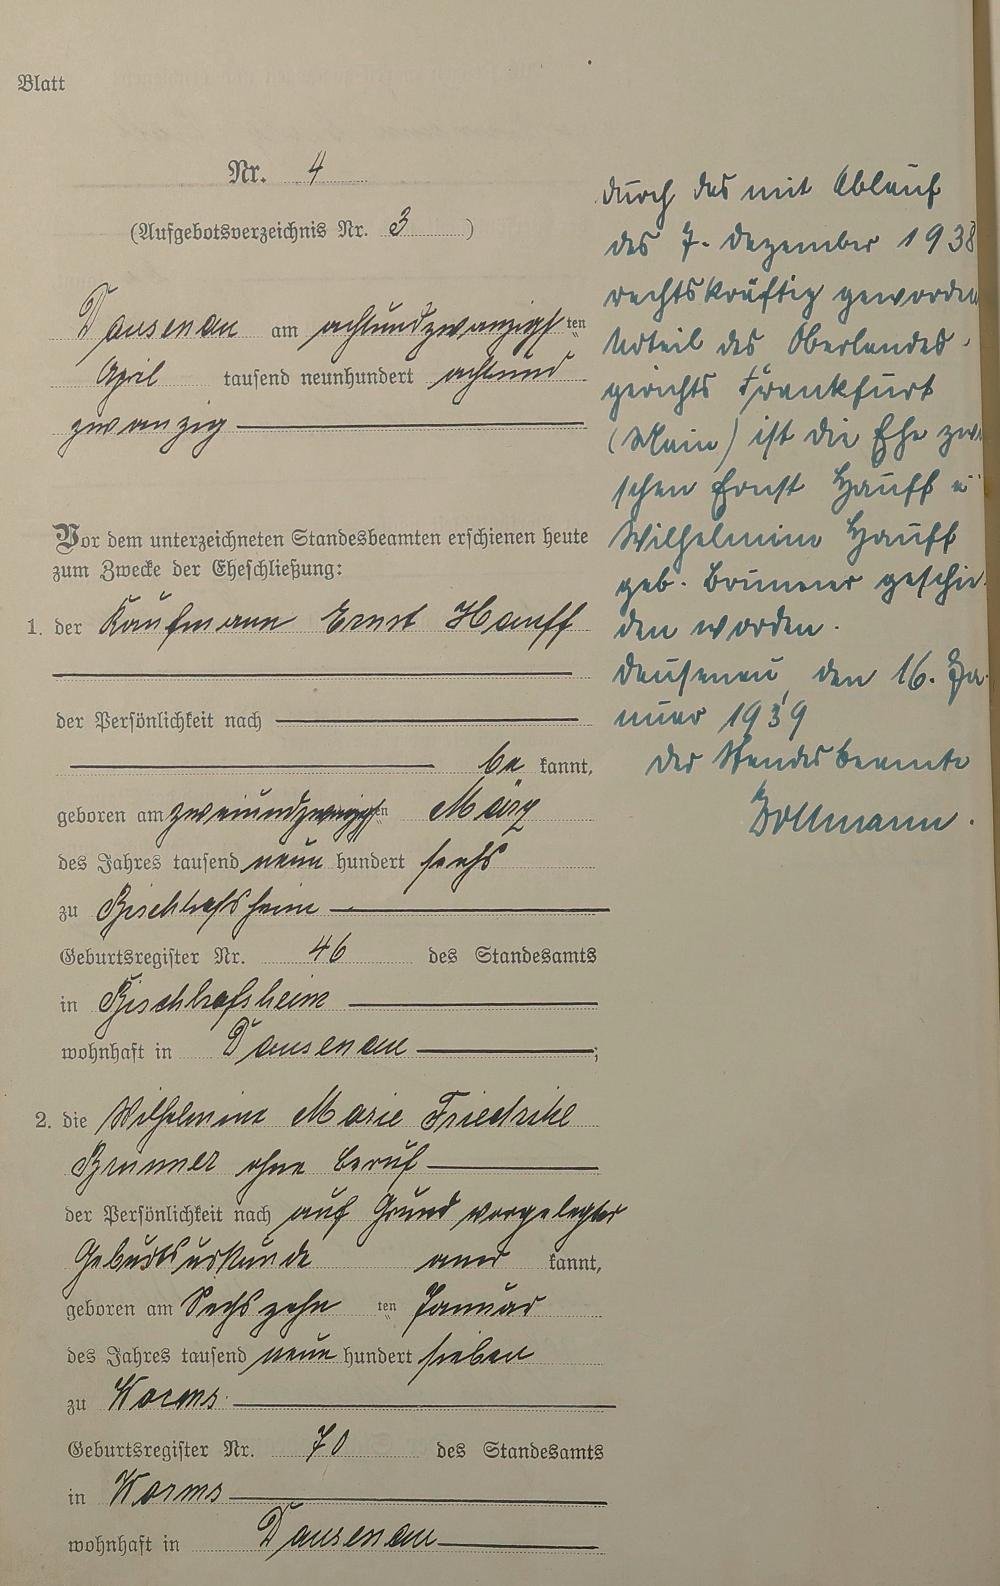 Blatt
Nr. 4
(Aufgebotsverzeichnis Nr. 3)
Dausenau am achtundzwanzigsten
April tausend neunhundert achtund
zwanzig
Vor dem unterzeichneten Standesbeamten erschienen heute
zum Zwecke der Eheschließung:
1. der Kaufmann Ernst Hauff
der Persönlichkeit nach
be kannt,
geboren am zweiundzwanzigsten März
des Jahres tausend neun hundert sechs
zu Bischofsheim
Geburtsregister Nr. 46 des Standesamts
in Bischofsheim
wohnhaft in Dausenau;
2. die Wilhelmine Marie Friedrike
Brunner ohne Beruf
der Persönlichkeit nach auf Grund vorgelegter
Geburtsurkunde aner kannt,
geboren am Sechszehn ten Januar
des Jahres tausend neun hundert sieben
zu Worms
Geburtsregister Nr. 70 des Standesamts
in Worms
wohnhaft in Dausenau
durch das mit Ablauf
des 7. Dezember 1938
rechtskräftig geworden
Urteil des Oberlandes-
gerichts Frankfurt
(Main) ist die Ehe zwi
schen Ernst Hauff u
Wilhelmine Hauff
geb. Brunner geschie-
den worden.
Dausenau, den 16. Ja-
nuar 1939
Der Standesbeamte
Bollmann.